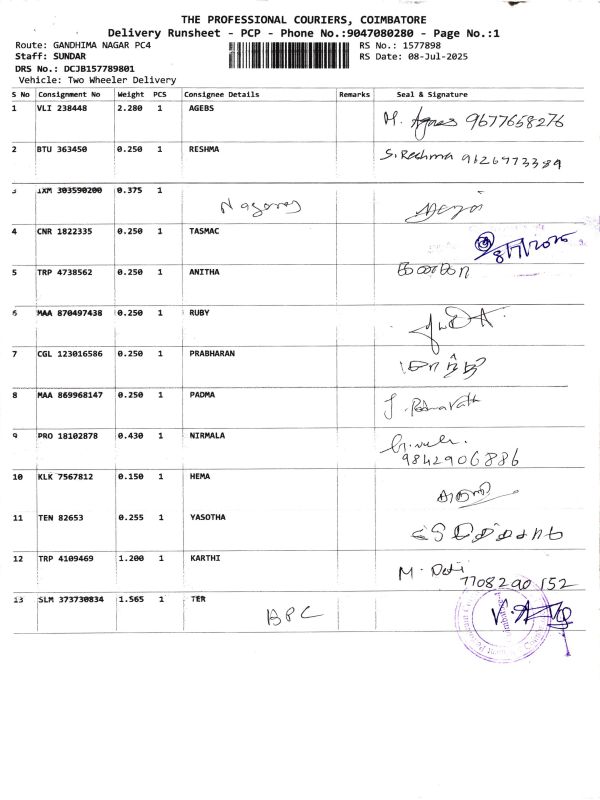 THE PROFESSIONAL COURIERS, COIMBATORE
Delivery Runsheet - PCP - Phone No.:9047080280 - Page No.:1
Route: GANDHIMA NAGAR PC4
RS No.: 1577898
Staff: SUNDAR
RS Date: 08-Jul-2025
DRS No.: DCJB157789801
Vehicle: Two Wheeler Delivery
S No Consignment No Weight PCS Consignee Details Remarks Seal & Signature
1 VLI 238448 2.280 1 AGEBS
M. Agnes 9677658276
2 BTU 363450 0.250 1 RESHMA
S. Reshma 9126973389
3 IXM 303590200 0.375 1
Nagaraj
4 CNR 1822335 0.250 1 TASMAC
8/7/2025
5 TRP 4738562 0.250 1 ANITHA
6 MAA 870497438 0.250 1 RUBY
7 CGL 123016586 0.250 1 PRABHARAN
8 MAA 869968147 0.250 1 PADMA
9 PRO 18102878 0.430 1 NIRMALA
9842906886
10 KLK 7567812 0.150 1 HEMA
11 TEN 82653 0.255 1 YASOTHA
12 TRP 4109469 1.200 1 KARTHI
M. Devi
7708290152
13 SLM 373730834 1.565 1 TER
BPC